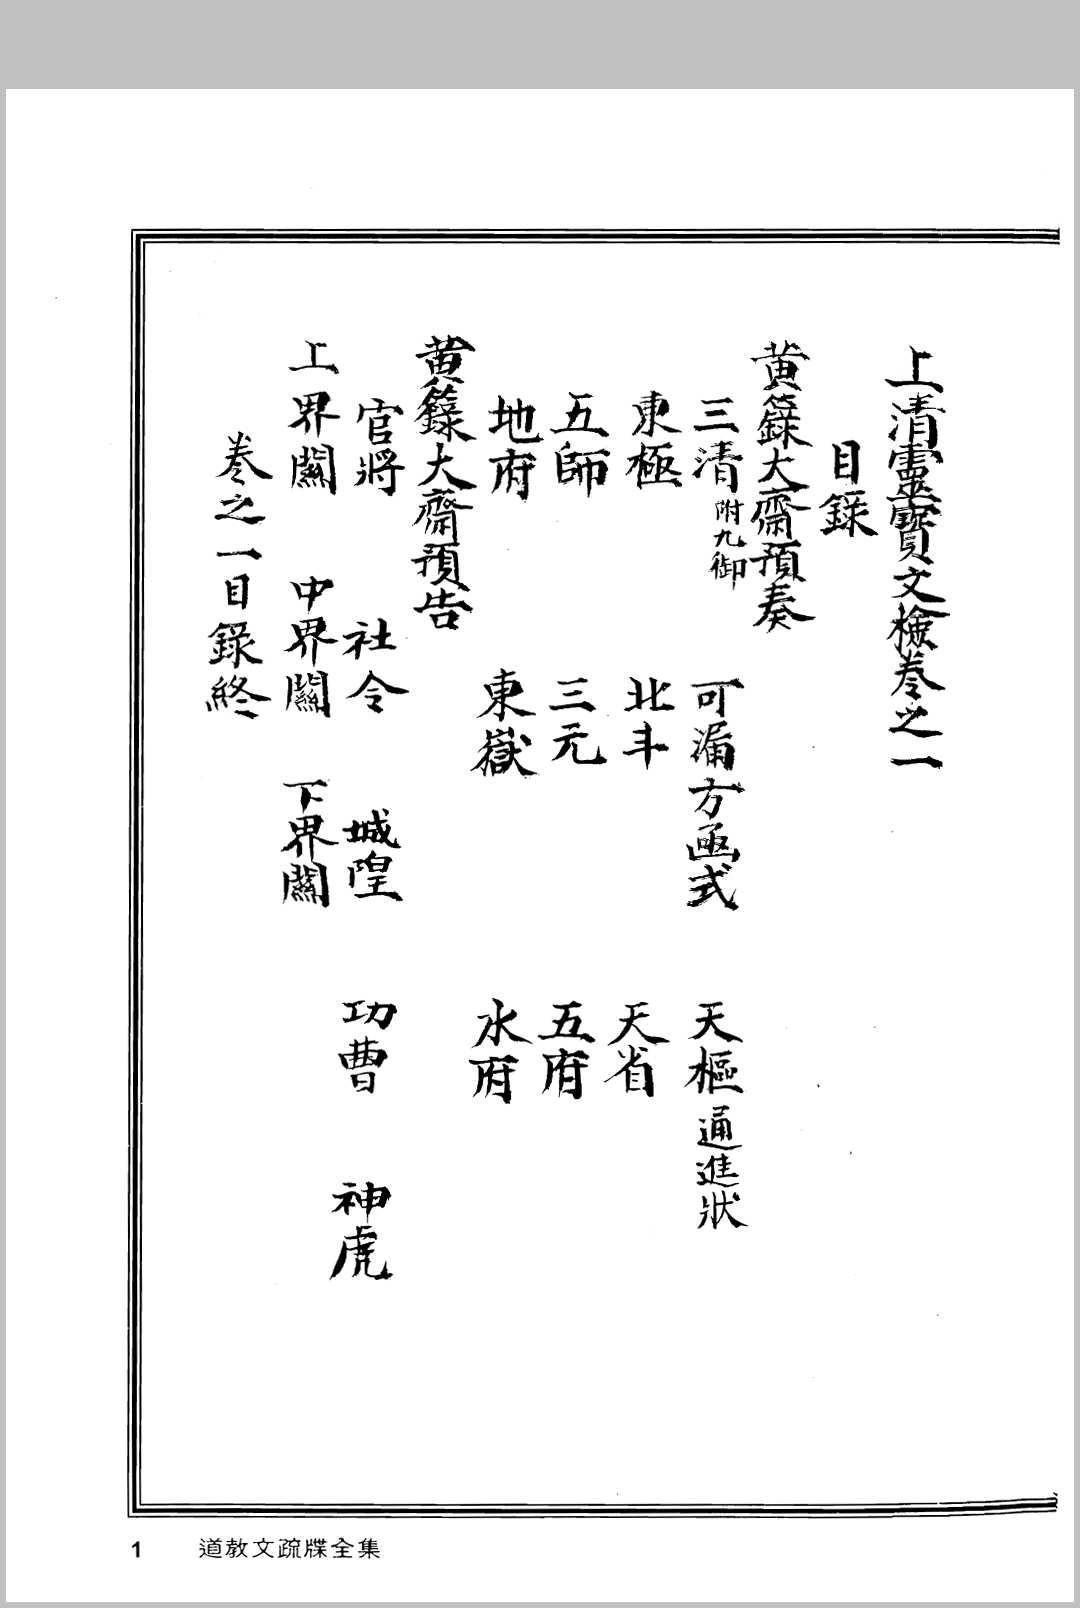 上清靈寶文檢卷之一
目錄
黃籙大齋預奏
三清附九御 可漏方函式 天樞通進狀
東極 北斗 天省
五師 三元 五府
地府 東嶽 水府
黃籙大齋預告
官將 社令 城隍 功曹 神虎
上界關 中界關 下界關
卷之一目錄終
1 道教文疏牒全集